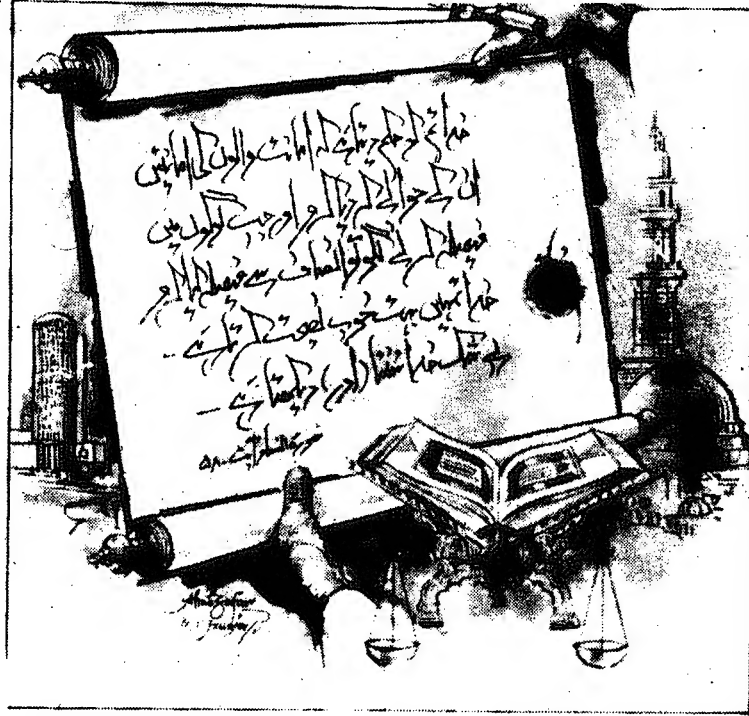 خدا تم کو حکم دیتا ہے کہ امانت والوں کی امانتیں
ان کے حوالے کر دیا کرو اور جب لوگوں میں
فیصلہ کرنے لگو تو انصاف سے فیصلہ کیا کرو
خدا تمہیں بہت خوب نصیحت کرتا ہے ۔
بے شک خدا سنتا (اور) دیکھتا ہے ۔
سورۃ النساء آیت ۵۸